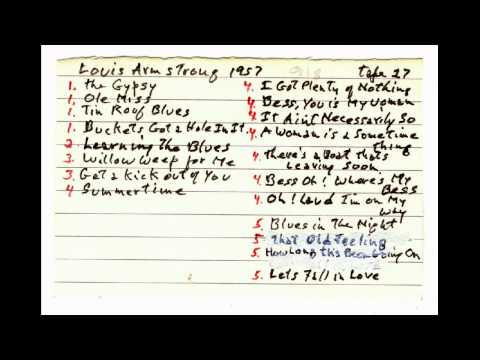 Louis Armstrong 1957 Tape 27
1. The Gypsy
1. Ole Miss
1. Tin Roof Blues
1. Buckets Got a Hole In It
2 Learning The Blues
3. Willow Weep for Me
3. Get a kick out of You
4 Summertime
4. I Got Plenty of Nothing
4. Bess, You is My Woman
4. It Aint Necessarily So
4. A Woman is a Sometime
thing
4. There's a Boat thats
Leaving Soon
4. Bess Oh! Where's My
Bess
4. Oh! Lord I'm on My
Way
5. Blues in The Night
5 That Old Feeling
5. How Long this Been Going On
5. Lets Fall in Love